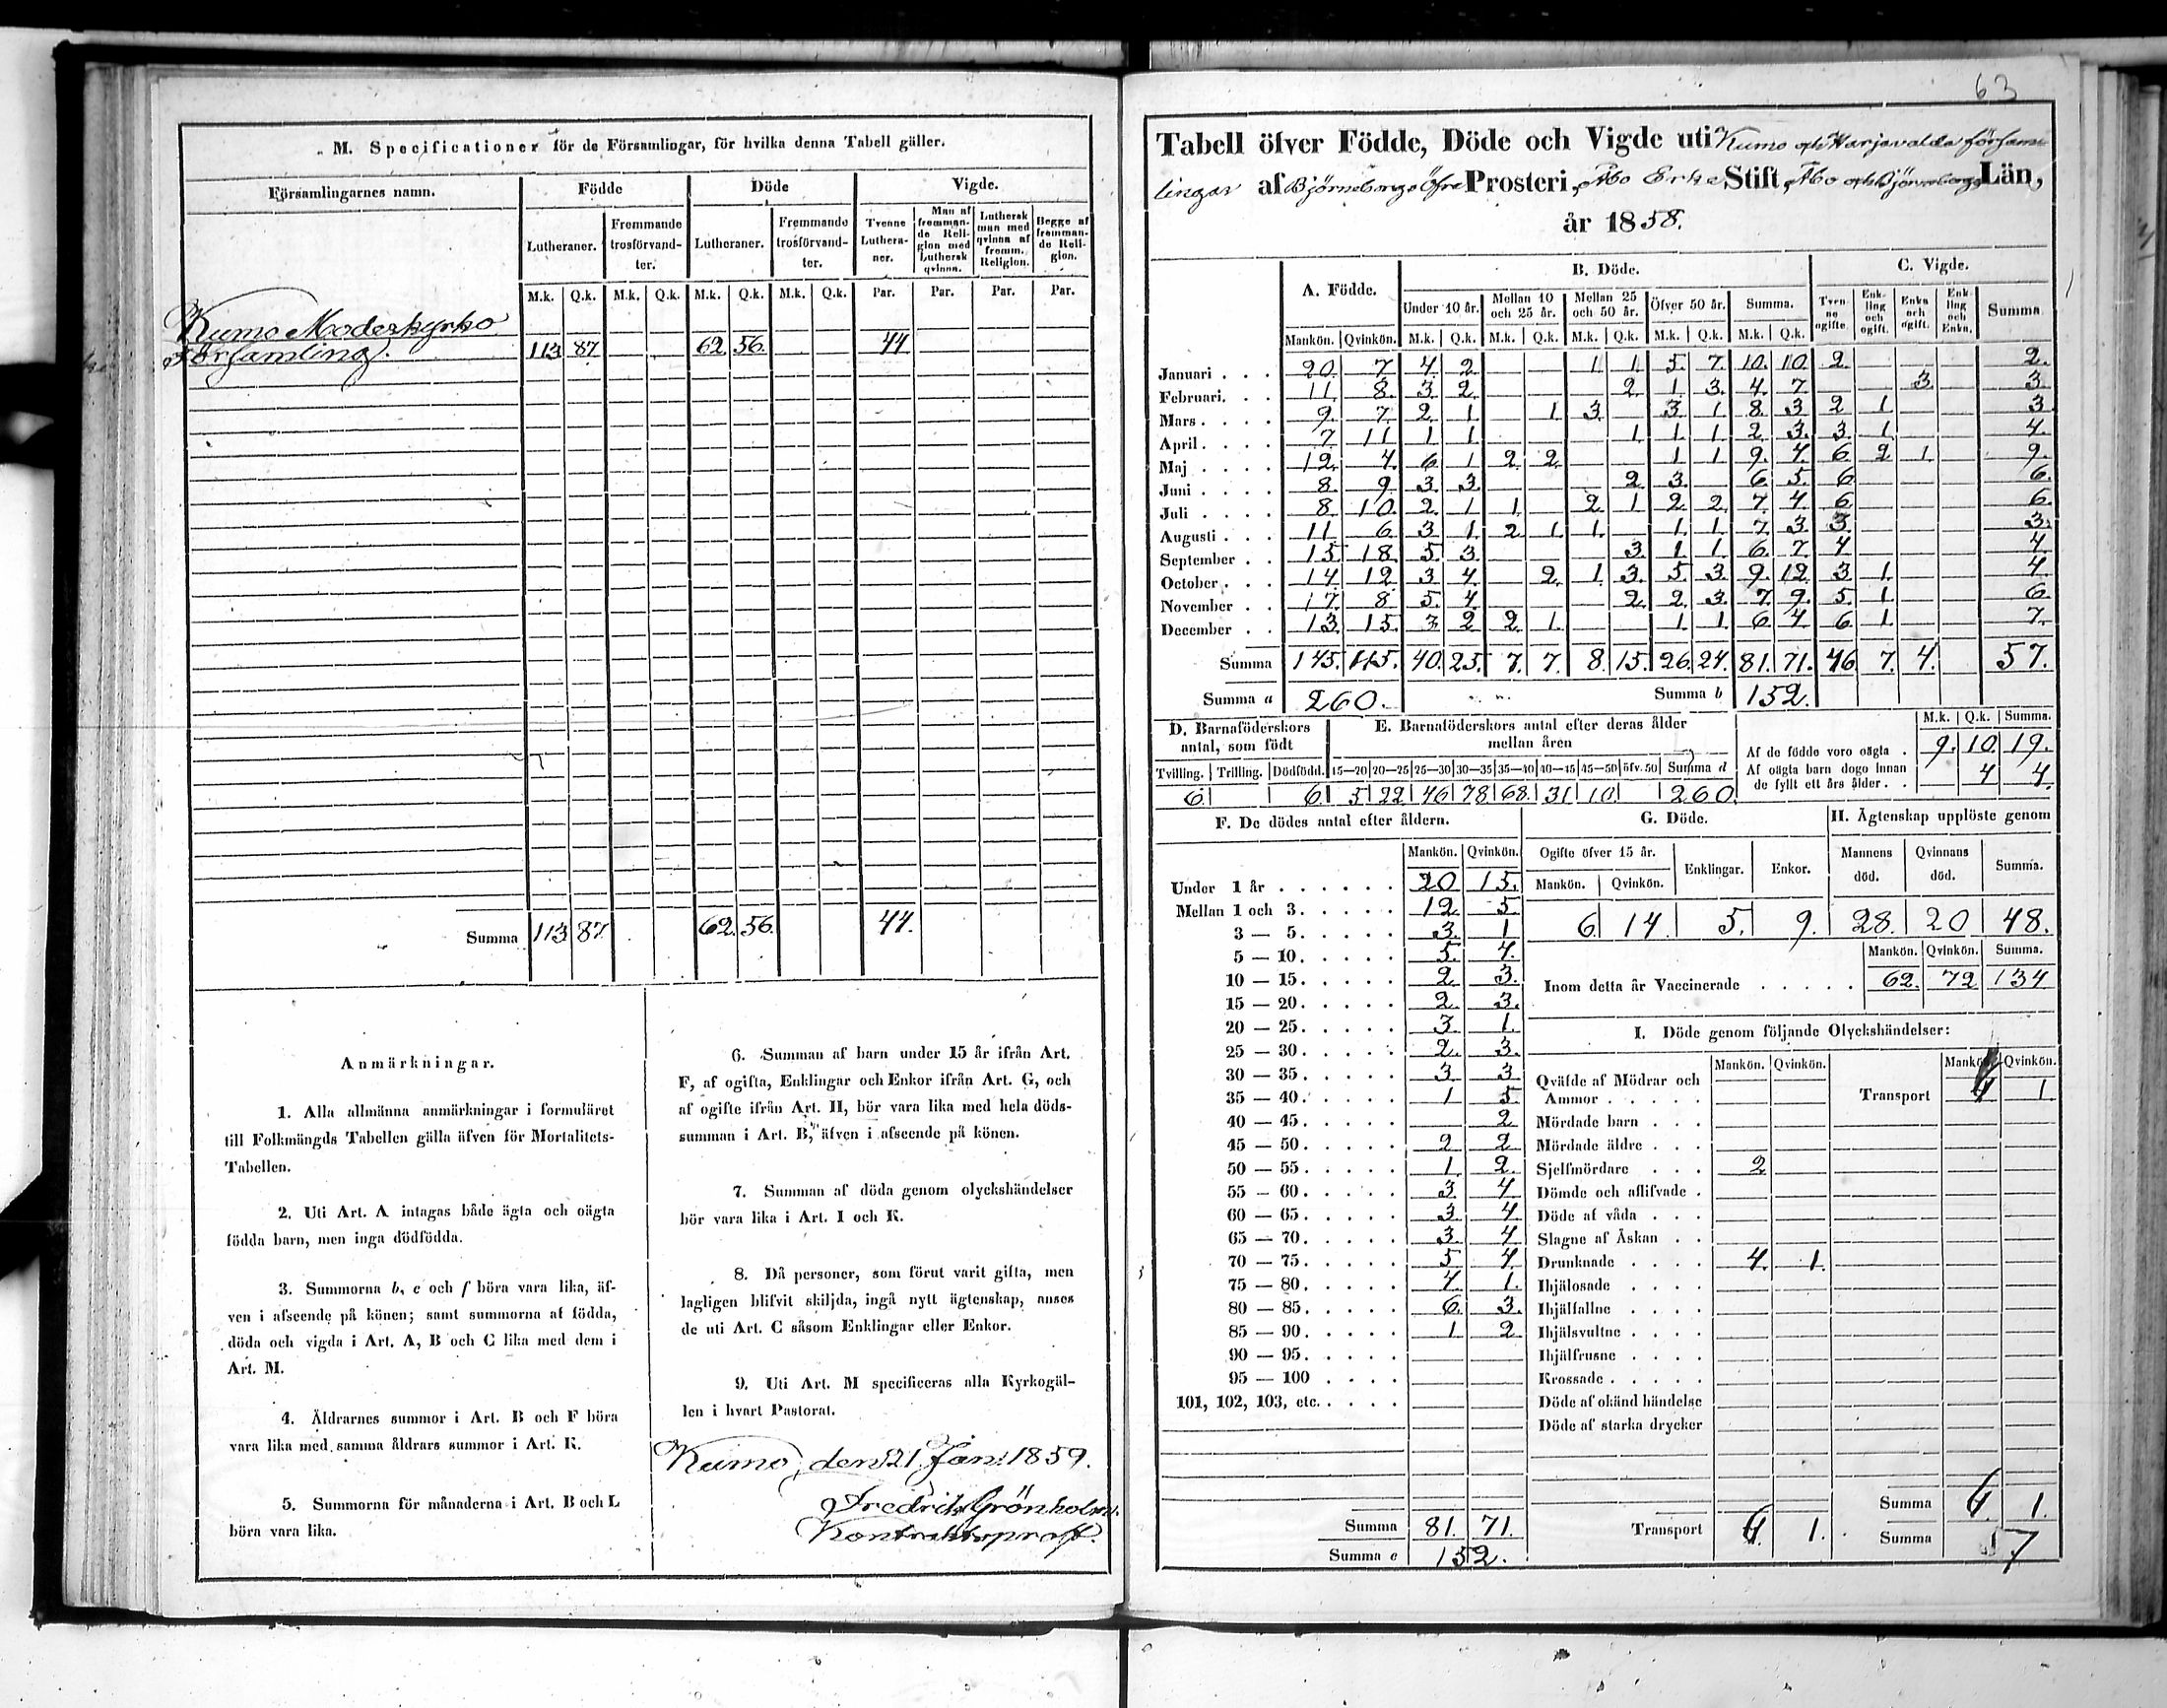 M. Specificationer för de Församlingar, för hvilka denna Tabell gäller.
Församlingarnes namn. Födde Döde Vigde.
Lutheraner. Fremmande trosförvandter. Lutheraner. Fremmande trosförvandter. Tvenne Lutheraner. Man af fremmande Religion med Luthersk qvinna. Luthersk man med qvinna af fremm. Religion. Begge af fremmande Religion.
M.k. Q.k. M.k. Q.k. M.k. Q.k. M.k. Q.k. Par. Par. Par. Par.
Kumo Moderkyrko
Församling. 113 87. 62. 56. 44
Summa 113 87. 62. 56. 44.
Anmärkningar.
1. Alla allmänna anmärkningar i formuläret
till Folkmängds Tabellen gälla äfven för Mortalitets-
Tabellen.
2. Uti Art. A intagas både ägta och oägta
födda barn, men inga dödfödda.
3. Summorna b, e och f böra vara lika, äf-
ven i afseende på könen; samt summorna af födda,
döda och vigda i Art. A, B och C lika med dem i
Art. M.
4. Åldrarnes summor i Art. B och F böra
vara lika med samma åldrars summor i Art. K.
5. Summorna för månaderna i Art. B och L
böra vara lika.
6. Summan af barn under 15 år ifrån Art.
F, af ogifta, Enklingar och Enkor ifrån Art. G, och
af ogifte ifrån Art. II, bör vara lika med hela döds-
summan i Art. B, äfven i afseende på könen.
7. Summan af döda genom olyckshändelser
bör vara lika i Art. I och K.
8. Då personer, som förut varit gifta, men
lagligen blifvit skiljda, ingå nytt ägtenskap, anses
de uti Art. C såsom Enklingar eller Enkor.
9. Uti Art. M specificeras alla Kyrkogäl-
len i hvart Pastorat.
Kumo, den 21 Jan: 1859.
Fredrik Grönholm.
Kontraktsprost.
63
Tabell öfver Födde, Döde och Vigde uti Kumo och Harjavalda försam
lingar af Björneborgs Öfre Prosteri, Åbo Erke Stift, Åbo och Björneborgs Län,
år 1858.
A. Födde. B. Döde. C. Vigde.
Under 10 år. Mellan 10 och 25 år. Mellan 25 och 50 år. Öfver 50 år. Summa. Tvenne ogifte Enkling och ogift. Enka och ogift. Enkling och Enka. Summa
Mankön. Qvinkön. M.k. Q.k. M.k. Q.k. M.k. Q.k. M.k. Q.k. M.k. Q.k.
Januari . . . 20. 7 4. 2 1 1. 5. 7. 10. 10. 2. 2.
Februari. . . 11. 8. 3. 2 2. 1. 3. 4. 7 3 3.
Mars . . . . 9. 7. 2. 1. 1. 3. 3. 1 8. 3 2 1. 3
April . . . . 7 11 1 1. 1. 1. 1 2. 3. 3. 1. 4.
Maj . . . . 12. 4. 6. 1 2. 2. 1 1 9. 4. 6. 2 1. 9.
Juni . . . . 8. 9. 3. 3. 2 3. 6. 5. 6. 6.
Juli . . . . 8. 10. 2. 1 1. 2 1 2. 2. 7. 4. 6. 6.
Augusti . . . 11. 6. 3. 1. 2 1. 1. 1. 1. 7. 3. 3. 3.
September . . 15. 18. 5. 3. 3. 1 1 6. 7 4 4
October . . . 14. 12. 3. 4. 2. 1. 3. 5. 3. 9. 12. 3. 1. 4.
November . . 17. 8. 5. 4. 2. 2. 3. 7. 9. 5. 1. 6.
December . . 13. 15. 3 2 2. 1. 1 1. 6 4 6. 1. 7.
Summa 145. 115. 40. 25. 7. 7. 8. 15. 26. 24. 81. 71. 46 7. 4. 57.
Summa a 260. Summa b 152.
D. Barnaföderskors antal, som födt E. Barnaföderskors antal efter deras ålder mellan åren M.k. Q.k. Summa.
Af de födde voro oägta . 9. 10. 19.
Af oägta barn dogo innan de fyllt ett års ålder . . 4 4.
Tvilling. Trilling. Dödfödd. 15—20 20—25 25—30 30—35 35—40 40—45 45—50 öfv. 50 Summa d
6. 6. 5 22 46 78 68. 31 10. 260.
F. De dödes antal efter åldern. G. Döde. II. Ägtenskap upplöste genom
Mankön. Qvinkön. Ogifte öfver 15 år. Enklingar. Enkor. Mannens död. Qvinnans död. Summa.
Mankön. Qvinkön.
6. 14. 5. 9. 28. 20 48.
Mankön. Qvinkön. Summa.
Inom detta år Vaccinerade . . . . . 62. 72 134
Under 1 år . . . . . . 20 15.
Mellan 1 och 3. . . . . 12 5
3 — 5. . . . . 3. 1
5 — 10. . . . . 5. 4.
10 — 15. . . . . 2 3.
15 — 20. . . . . 2. 3.
20 — 25. . . . . 3 1.
25 — 30. . . . . 2. 3.
30 — 35. . . . . 3 3
35 — 40. . . . . 1 5
40 — 45. . . . . 2
45 — 50. . . . . 2 2
50 — 55. . . . . 1 2.
55 — 60. . . . . 3. 4
60 — 65. . . . . 3. 4
65 — 70. . . . . 3. 4
70 — 75. . . . . 5 4
75 — 80. . . . . 4. 1.
80 — 85. . . . . 6. 3.
85 — 90. . . . . 1 2
90 — 95. . . . .
95 — 100 . . . .
101, 102, 103, etc. . . . .
Summa 81. 71.
Summa e 152.
I. Döde genom följande Olyckshändelser:
Mankön. Qvinkön. Mankön. Qvinkön.
Qväfde af Mödrar och
Ammor . . . . . Transport 1.
Mördade barn . . .
Mördade äldre . . .
Sjelfmördare . . . 2
Dömde och aflifvade .
Döde af våda . . .
Slagne af Åskan . .
Drunknade . . . . 4. 1.
Ihjälosade . . . .
Ihjälfallne . . . .
Ihjälsvultne . . . .
Ihjälfrusne . . . .
Krossade . . . . .
Döde af okänd händelse
Döde af starka drycker
Summa 6. 1.
Transport 6. 1. Summa 7